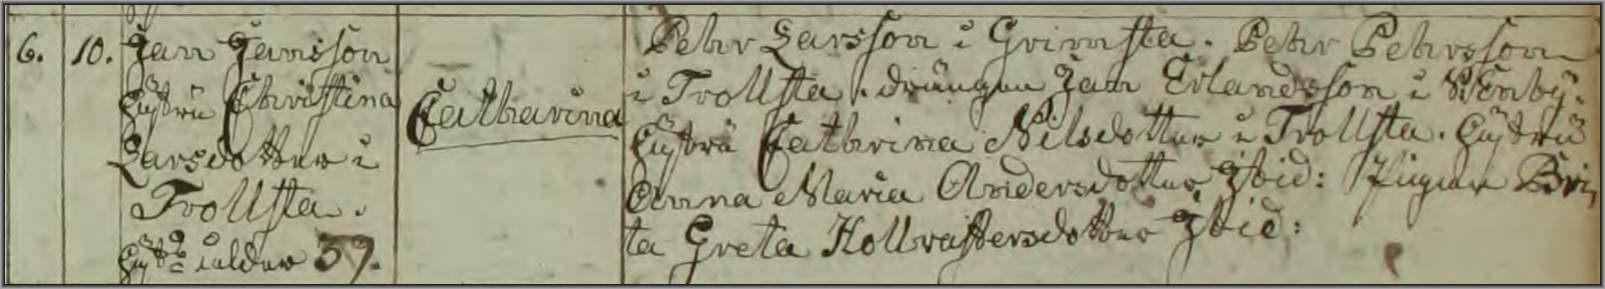 6. 10. Jan Jansson
hustru Christina
Larsdotter i
Trollsta.
hust: ålder 39.
Catharina
Pehr Larsson i Grimsta. Pehr Pehrsson
i Trollsta. drängen Jan Erlandsson i Wenby.
hustru Cathrina Nilsdotter i Trollsta. hustru
Anna Maria Andersdotter Ibid: Pigan Bri,
ta Greta Hollvastersdotter Ibid: